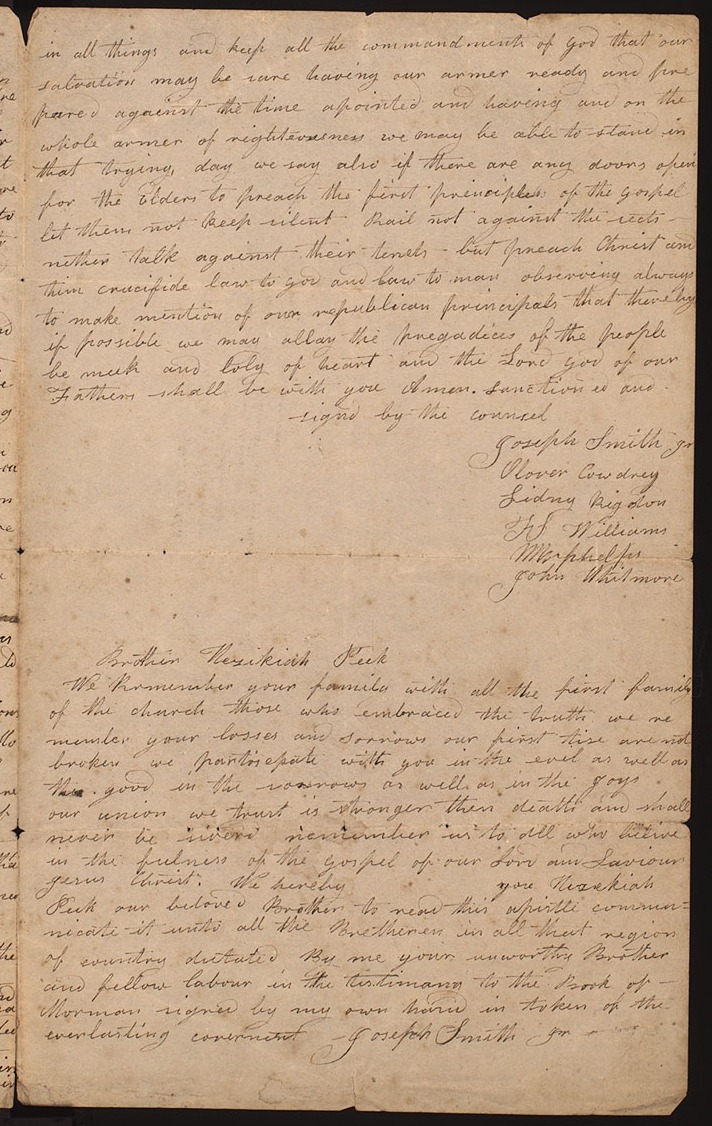 in all things and keep all the commandments of God that our
salvation may be sure having our armer ready and pre
pared against the time apointed and having and on the
whole armer of righteousness we may be able to stand in
that trying, day we say also if there are any doors open
for the Elders to preach the first principles of the gospel
let them not keep silent Rail not against the sects
nether talk against their tenets - but preach Christ and
him crucifide law to God and law to man observing always
to make mention of our republican principals that thereby
if possible we may allay the pregadices of the people
be meek and loly of heart and the Lord God of our
Fathers shall be with you Amen. Sanctioned and
signd by the counsel
Joseph Smith jr
Olover Cowdrey
Sidny Rigdon
FG Williams
WW phelps
John Whitmore
Brother Hezikiah Peck
We Remember your family with all the first family
of the church those who embraced the truth we re
member your losses and sorrows our first tise are not
broken we partisepate with you in the evel as well as
the good in the sorrows as well as in the joys
our union we trust is stronger then death and shall
never be siverd remember us to all who belive
in the fulness of the gospel of our Lord and Saviour
Jesus Christ. We hereby you Hezekiah
Peck our beloved Brother to read this apistle commu=
nicate it unto all the Bretheren in all that region
of country dictated By me your unworthy Brother
and fellow labour in the testimony to the Book of -
Mormon signed by my own hand in token of the
everlasting covernent Joseph Smith Jr